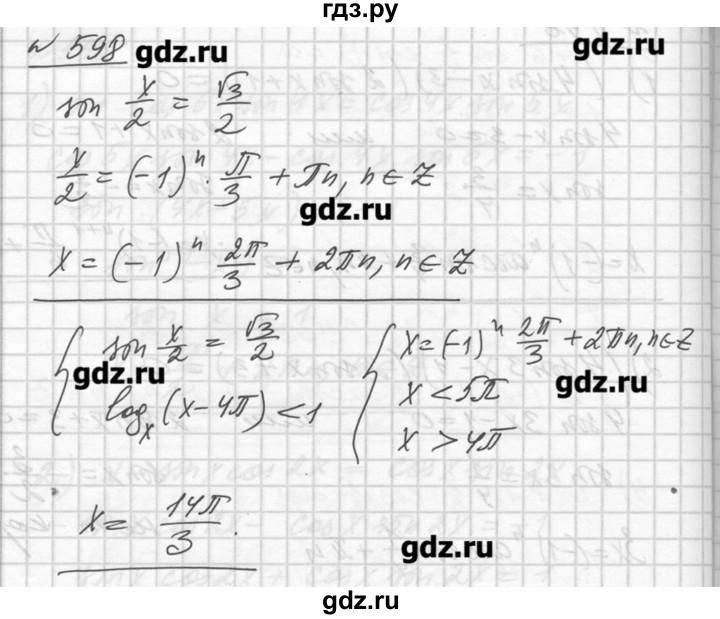 гдз.ру
№ 598 gdz.ru gdz.ru
sin x/2 = √3/2
x/2 = (-1)^n · π/3 + πn, n ∈ Z
gdz.ru
x = (-1)^n 2π/3 + 2πn, n ∈ Z
{ sin x/2 = √3/2
gdz.ru
log_x (x - 4π) < 1
{ x = (-1)^n 2π/3 + 2πn, n ∈ Z
gdz.ru
x < 5π
x > 4π
x = 14π/3.
gdz.ru
gdz.ru